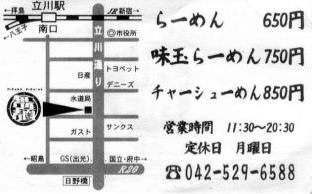 立川駅
←拝島
JR新宿→
←八王子
南口
立川通り
◎市役所
日産
トヨペット
デニーズ
水道局
ガスト
サンクス
←昭島
GS(出光)
国立・府中→
R20
日野橋
らーめん 650円
味玉らーめん 750円
チャーシューめん 850円
営業時間 11:30〜20:30
定休日 月曜日
☎042-529-6588